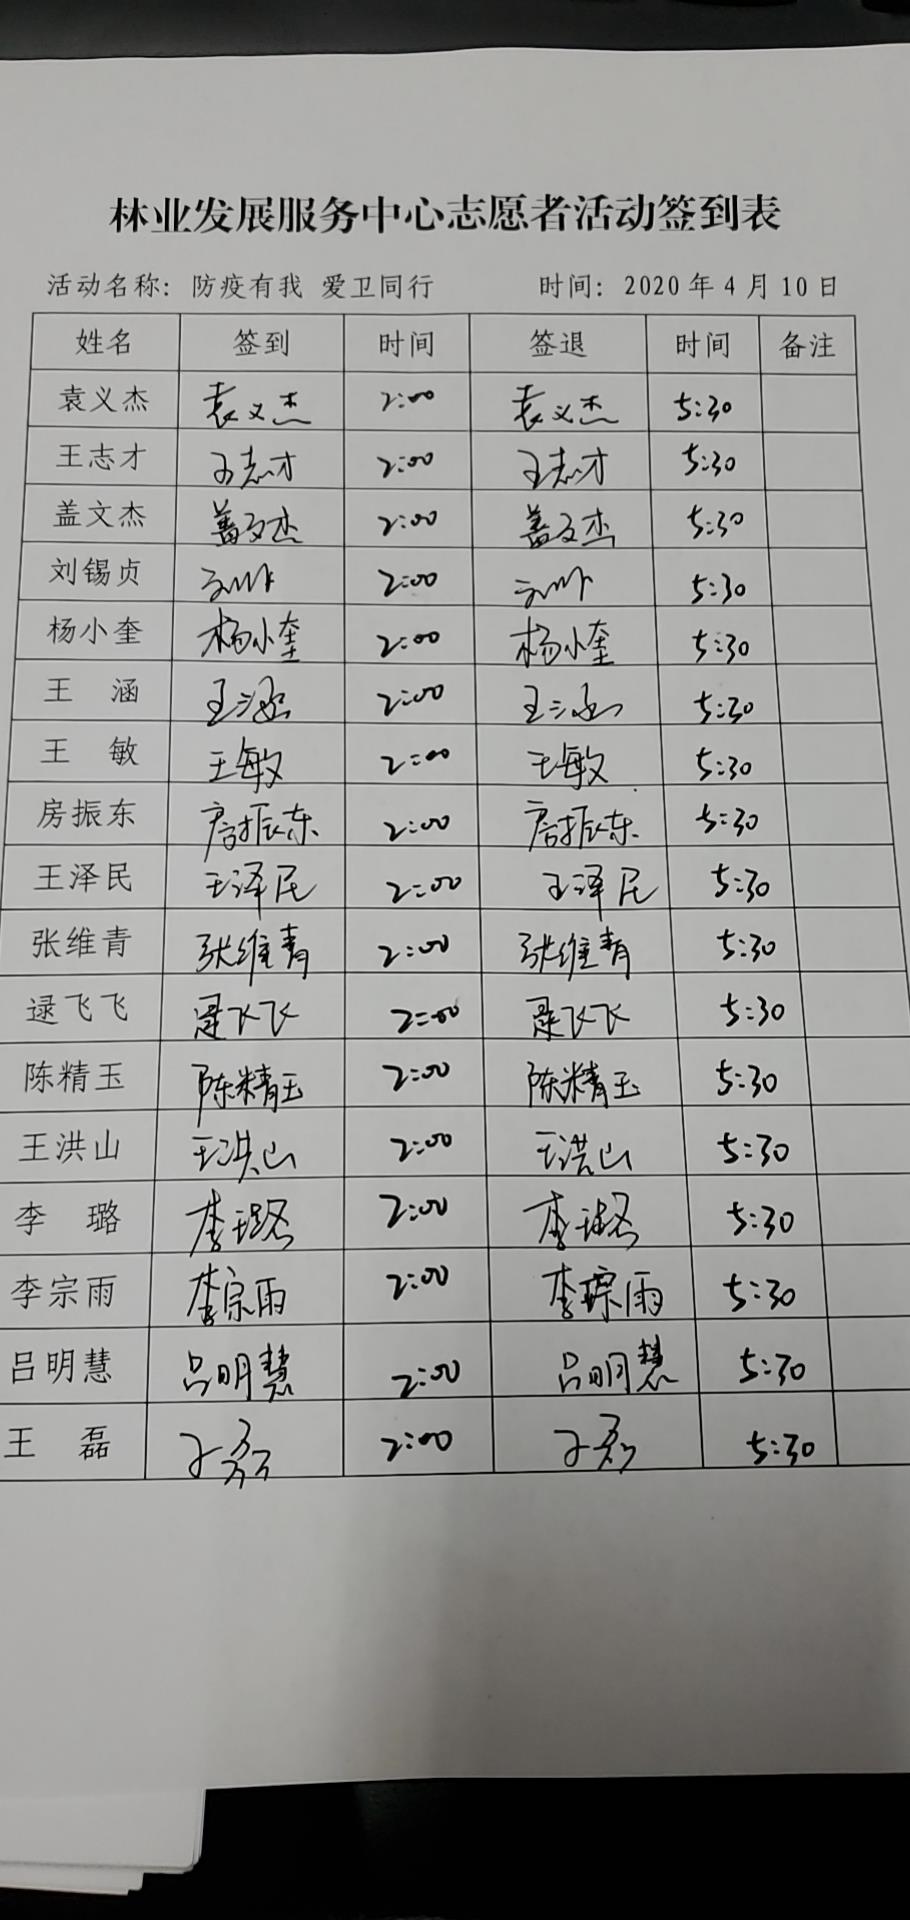 林业发展服务中心志愿者活动签到表
活动名称：防疫有我 爱卫同行 时间：2020年4月10日
姓名 签到 时间 签退 时间 备注
袁义杰 袁义杰 2:00 袁义杰 5:30
王志才 王志才 2:00 王志才 5:30
盖文杰 盖文杰 2:00 盖文杰 5:30
刘锡贞 2:00 5:30
杨小奎 杨小奎 2:00 杨小奎 5:30
王 涵 王涵 2:00 王涵 5:30
王 敏 王敏 2:00 王敏 5:30
房振东 房振东 2:00 房振东 5:30
王泽民 王泽民 2:00 王泽民 5:30
张维青 张维青 2:00 张维青 5:30
逯飞飞 逯飞飞 2:00 逯飞飞 5:30
陈精玉 陈精玉 2:00 陈精玉 5:30
王洪山 王洪山 2:00 王洪山 5:30
李 璐 李璐 2:00 李璐 5:30
李宗雨 李宗雨 2:00 李琮雨 5:30
吕明慧 吕明慧 2:00 吕明慧 5:30
王 磊 王磊 2:00 王磊 5:30